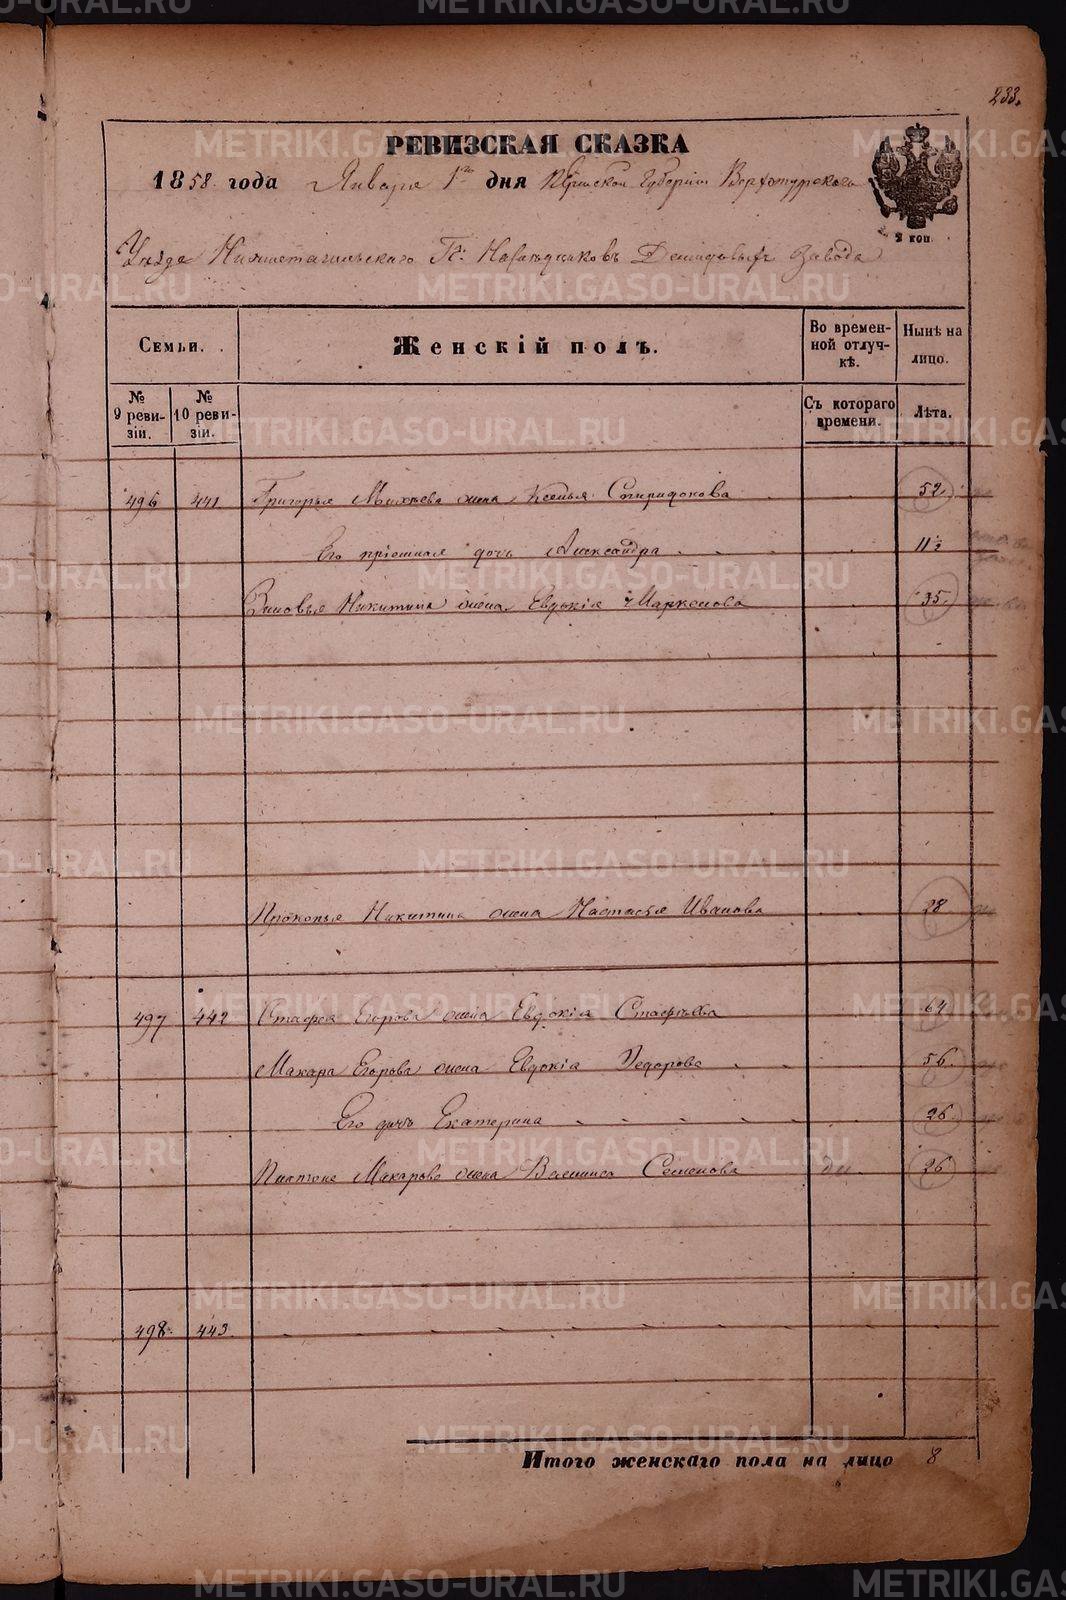 233.
РЕВИЗСКАЯ СКАЗКА
1858 года Января 1го дня Пермской Губерніи Верхотурскаго
2 коп
Уезда Нижнетагильскаго Гг. Наследниковъ Демидовыхъ Завода
Семьи. Женскій полъ. Во временной отлучкѣ. Нынѣ на лицо.
№ 9 ревизіи. № 10 ревизіи. Съ котораго времени. Лѣта.
496 441 Григорья Михѣева жена Ксенья Спиридонова 52
Его пріемная дочь Александра 11½
Зиновья Никитина жена Евдокія Маркелова 35
Прокопья Никитина жена Настасья Иванова 28
497 442 Егорова жена Евдокія 64
Макара Егорова жена Евдокія Федорова 56
Его дочь Екатерина 26
Платона Макарова жена Семенова 26
498 443
Итого женскаго пола на лицо 8
METRIKI.GASO-URAL.RU